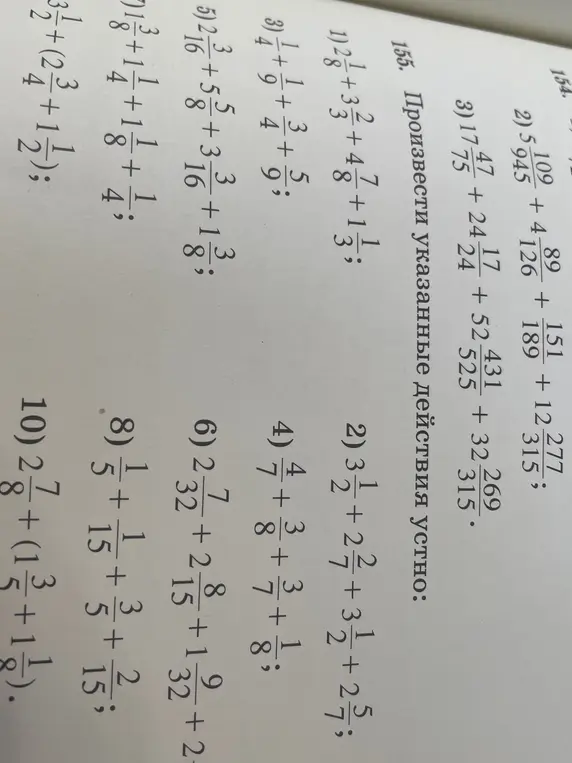 154.
2) 5 109/945 + 4 89/126 + 151/189 + 12 277/315;
3) 17 47/75 + 24 17/24 + 52 431/525 + 32 269/315.
155. Произвести указанные действия устно:
1) 2 1/8 + 3 2/3 + 4 7/8 + 1 1/3; 2) 3 1/2 + 2 2/7 + 3 1/2 + 2 5/7;
3) 1/4 + 1/9 + 3/4 + 5/9; 4) 4/7 + 3/8 + 3/7 + 1/8;
5) 2 3/16 + 5 5/8 + 3 3/16 + 1 3/8; 6) 2 7/32 + 2 8/15 + 1 9/32 + 2
7) 1 3/8 + 1 1/4 + 1 1/8 + 1/4; 8) 1/5 + 1/15 + 3/5 + 2/15;
3 1/2 + (2 3/4 + 1 1/2); 10) 2 7/8 + (1 3/5 + 1 1/8).